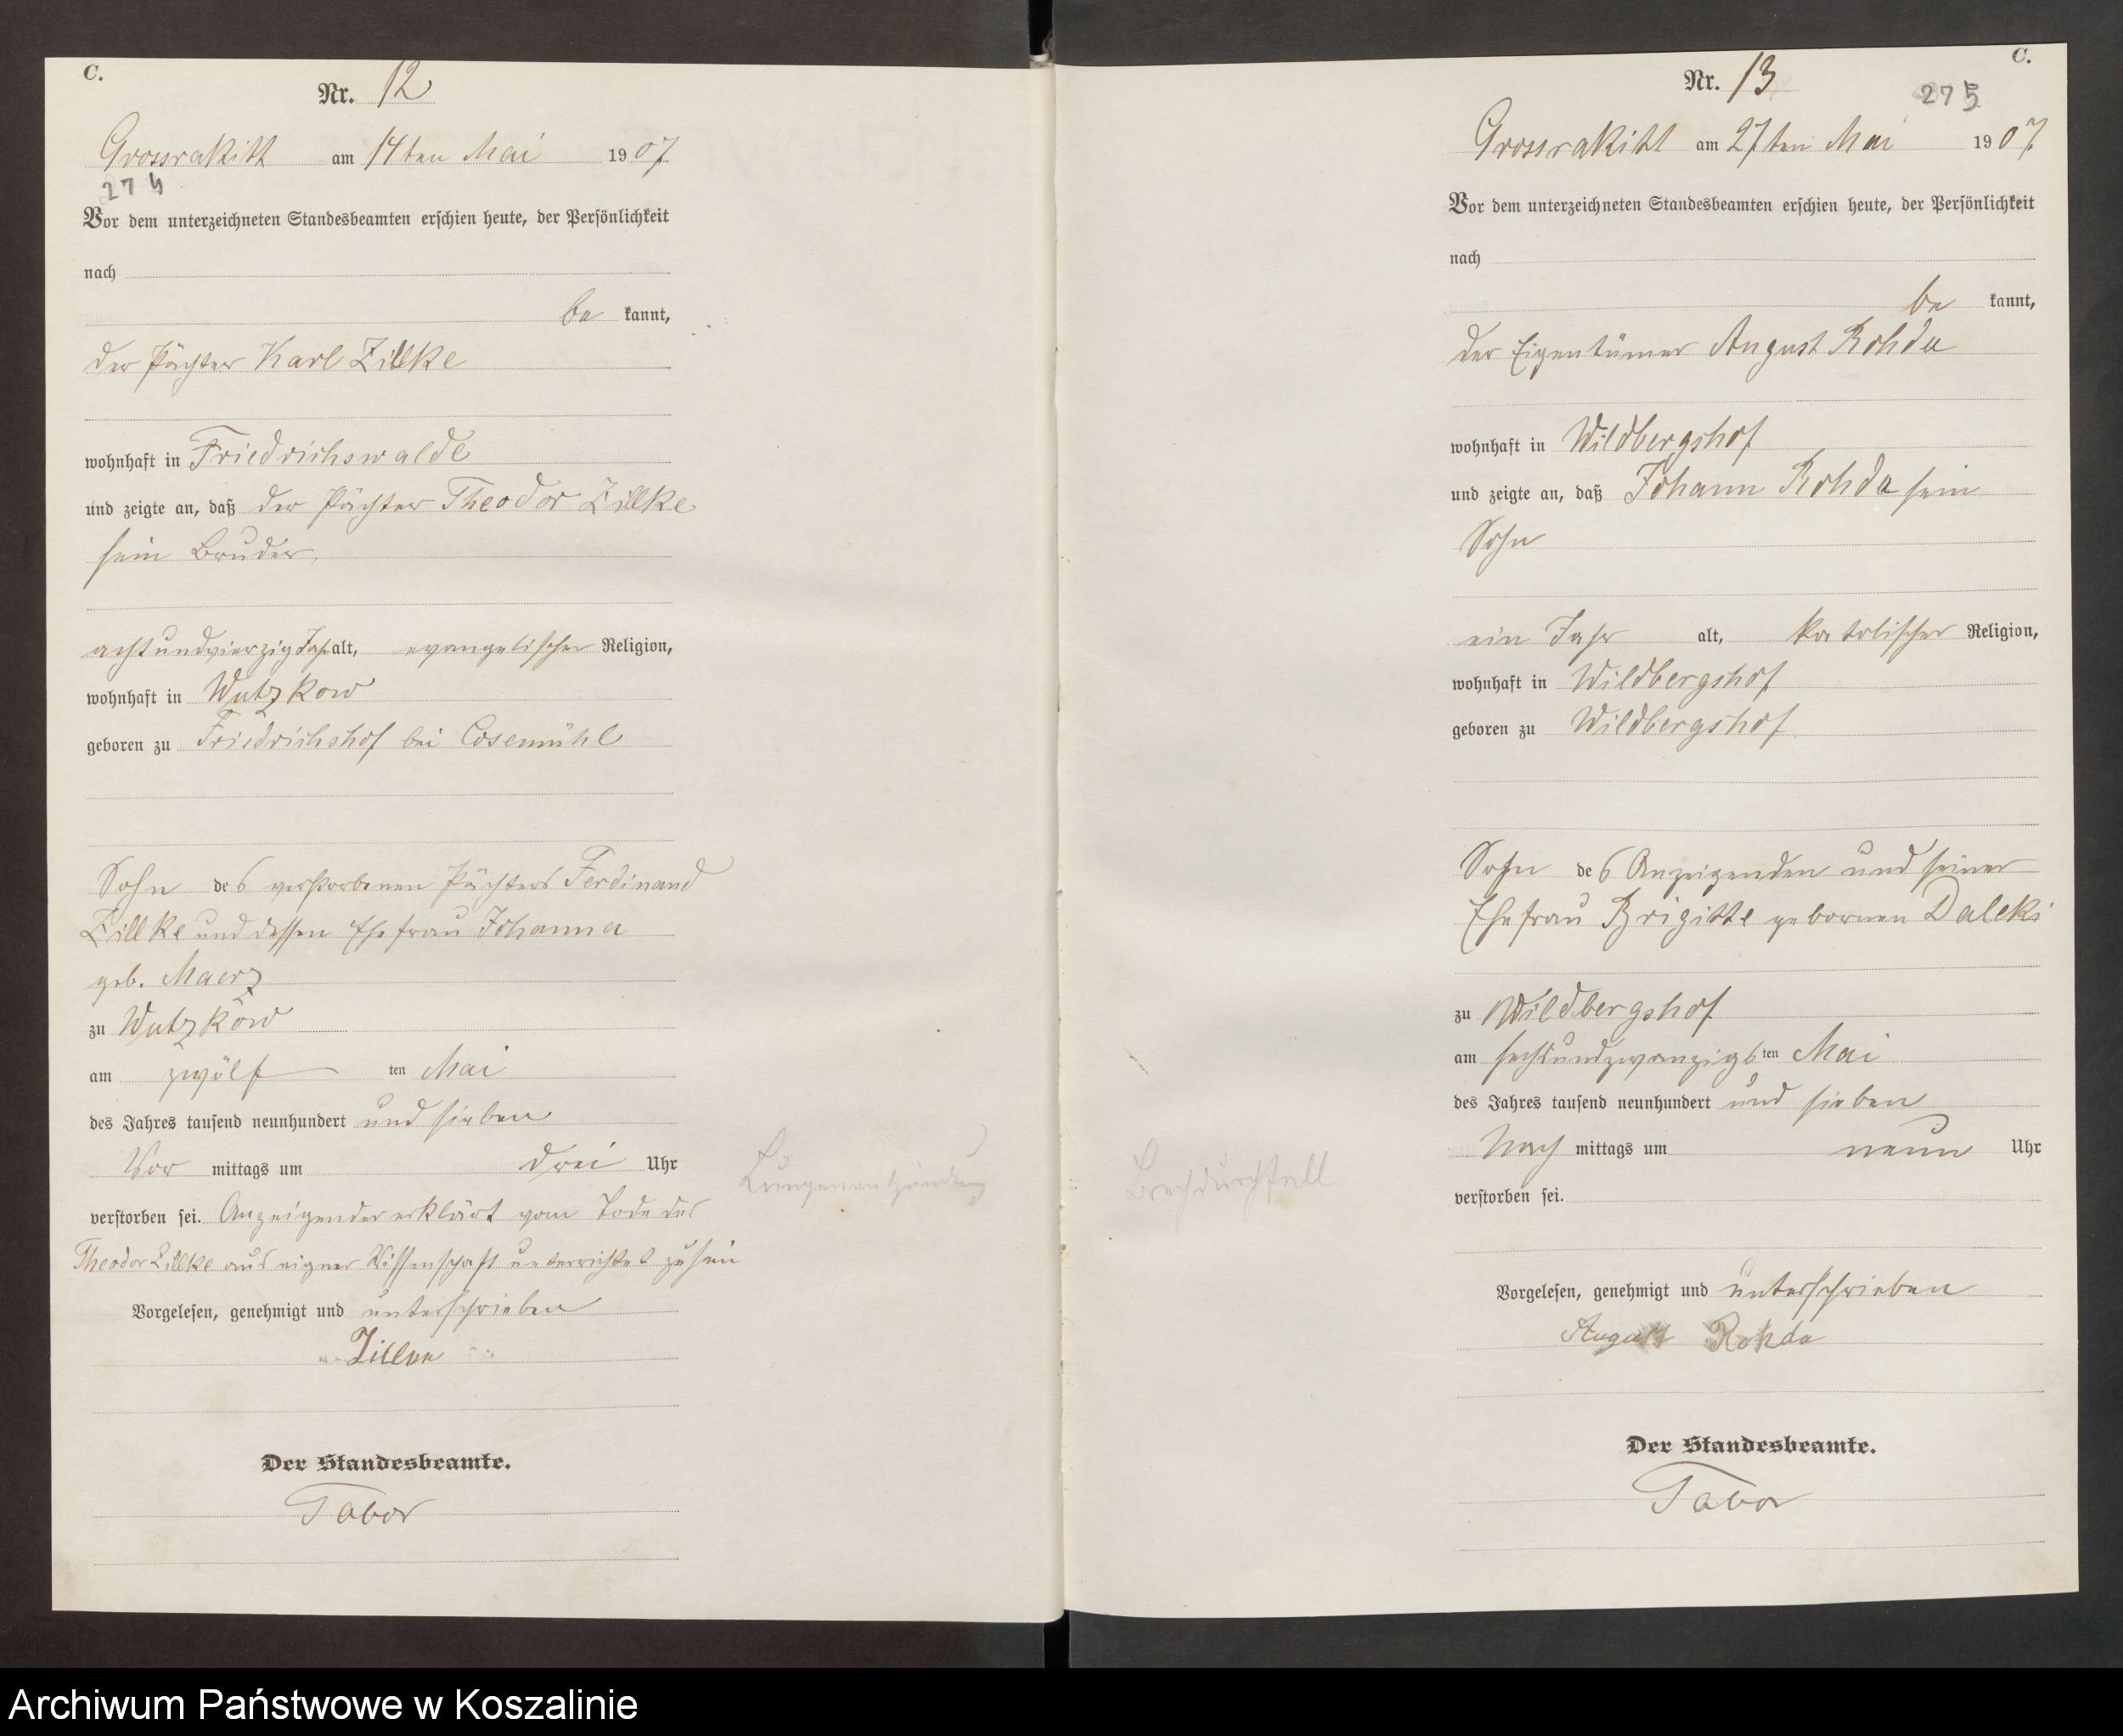 C.
Nr. 12
Grossrakitt am 14ten Mai 1907
274
Vor dem unterzeichneten Standesbeamten erschien heute, der Persönlichkeit
nach
be kannt,
der Pächter Karl Zillke
wohnhaft in Friedrichswalde
und zeigte an, daß der Pächter Theodor Zillke
sein Bruder,
achtundvierzig Jahr alt, evangelischer Religion,
wohnhaft in Wutzkow
geboren zu Friedrichshof bei Cosemühl
Sohn des verstorbenen Pächters Ferdinand
Zillke und dessen Ehefrau Johanna
geb. Maerz
zu Wutzkow
am zwölf ten Mai
des Jahres tausend neunhundert und sieben
Vor mittags um drei Uhr
verstorben sei. Anzeigender erklärt vom Tode des
Theodor Zillke aus eigner Wissenschaft unterrichtet zu sein
Vorgelesen, genehmigt und unterschrieben
Zillke
Der Standesbeamte.
Tabor
Lungenentzündung
C.
Nr. 13
275
Grossrakitt am 27ten Mai 1907
Vor dem unterzeichneten Standesbeamten erschien heute, der Persönlichkeit
nach
be kannt,
der Eigentümer August Rohda
wohnhaft in Wildbergshof
und zeigte an, daß Johann Rohda sein
Sohn
ein Jahr alt, katolischer Religion,
wohnhaft in Wildbergshof
geboren zu Wildbergshof
Sohn des Anzeigenden und seiner
Ehefrau Brigitte gebornen Daleki
zu Wildbergshof
am sechsundzwanzigs ten Mai
des Jahres tausend neunhundert und sieben
Nach mittags um neun Uhr
verstorben sei.
Brechdurchfall
Vorgelesen, genehmigt und unterschrieben
August Rohda
Der Standesbeamte.
Tabor
Archiwum Państwowe w Koszalinie